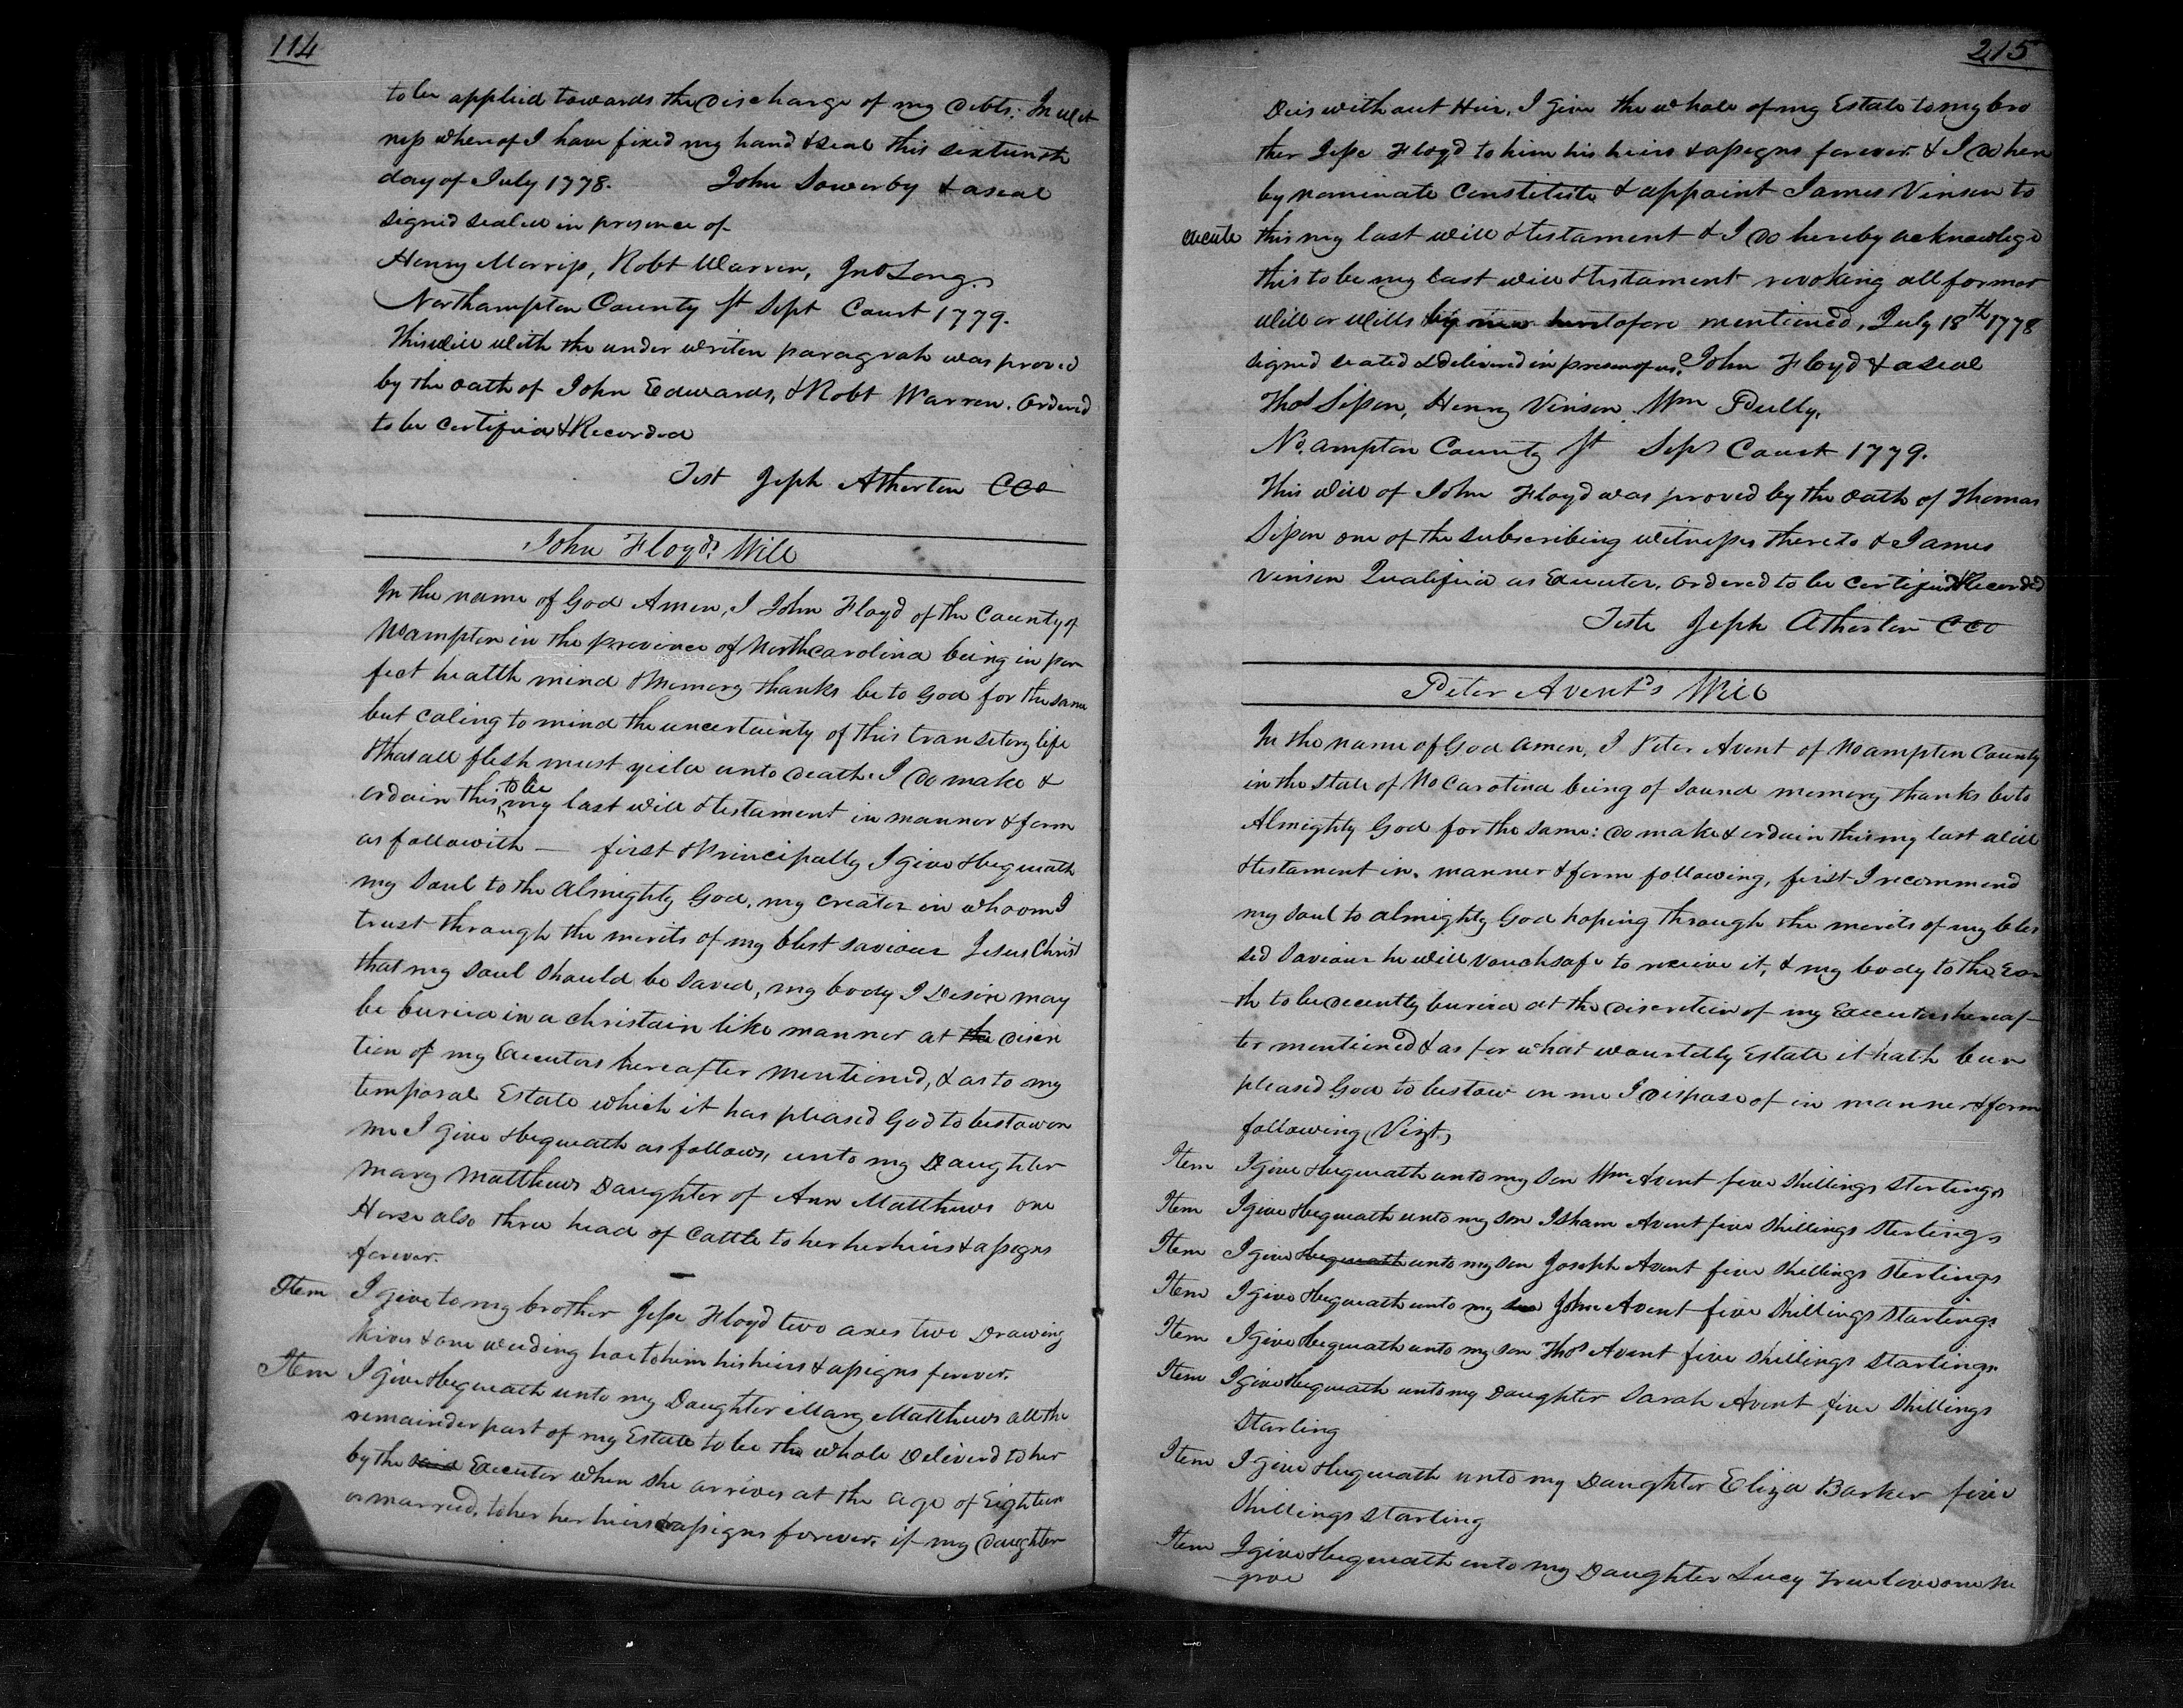 114
to be applied towards the Discharge of my Debts. In Wit
ness whereof I have fixed my hand & seal this sixteenth
day of July 1778. John Sowerby & a seal
signed sealed in presence of
Henry Morriss, Robt Warren, Jno Long.
Northampton County St Sept Court 1779.
This Will With the under writen paragrah was proved
by the oath of John Edwards, & Robt Warren. Ordered
to be Certified & Recorded
Test Jeph Atherton CCo
John Floyd's Will
In the name of God Amen, I John Floyd of the County of
Noampton in the province of Northcarolina being in per
fect health mind & Memory thanks be to God for the same
but caling to mind the uncertainty of this transitory life
& that all flesh must yeild unto death. I do make &
ordain this to be my last will & testament in manner & form
as followith — first & Principally I give & bequeath
my Soul to the Almighty God, my creator in whoom I
trust through the merits of my blest saviour Jesus Christ
that my Soul should be Saved, my body I Desire may
be buried in a christain like manner at the discre
tion of my Executors hereafter mentioned, & as to my
temporal Estate which it has pleased God to bestow on
me I give & bequeath as follows, unto my Daughter
Mary Matthews Daughter of Ann Matthews one
Horse also three head of Cattle to her her heirs & assigns
forever.
Item I give to my brother Jesse Floyd two axes two Drawing
knives & one weeding hoe to him his heirs & assigns forever.
Item I give & bequeath unto my Daughter Mary Matthews all the
remainder part of my Estate to be the whole Deliverd to her
by the said Executor when she arrives at the age of Eighteen
or married, to her her heirs & assigns forever. if my Daughter
215
Dies without Heir, I give the whole of my Estate to my bro
ther Jesse Floyd to him his heirs & assigns forever. & I do here
by nominate Constitute & appoint James Vinson to
execute this my last will & testament & I do hereby acknowlege
this to be my last will & testament revoking all former
Will or Wills by me heretofore mentioned, July 18th 1778
signed sealed & delivered in presen of us. John Floyd & a seal
Thos Sisson, Henry Vinson Wm Pully.
No.ampton County St Sept Court 1779.
This Will of John Floyd was proved by the oath of Thomas
Sisson one of the subscribing witnesses thereto & James
Vinson Qualified as Executor, ordered to be certified & Recorded
Teste Jeph Atherton CCo
Peter Avent's Will
In the name of God amen, I Peter Avent of Noampton County
in the State of No Carolina being of sound memory thanks be to
Almighty God for the same: do make & ordain this my last will
& testament in manner & form following, first I recommend
my soul to almighty God hoping through the merits of my bles
sed Saviour he will vouchsafe to receive it, & my body to the Ear
th to be decently buried at the discretion of my Executors hereaf
ter mentioned & as for what wourtelly Estate it hath been
pleased God to bestow on me I dispose of in manner & form
following (Vizt.)
Item I give & bequeath unto my son Wm Avent five shillings sterlings
Item I give & bequeath unto my son Isham Avent five shillings sterlings
Item I give & bequeath unto my son Joseph Avent five shillings sterlings
Item I give & bequeath unto my son John Avent five shillings starlings
Item I give & bequeath unto my son Thos Avent five shillings starlings
Item I give & bequeath unto my Daughter Sarah Avent five shillings
Starling
Item I give & bequeath unto my Daughter Eliza Barker five
shillings starling
Item I give & bequeath unto my Daughter Lucy Freelove one Ne
groe